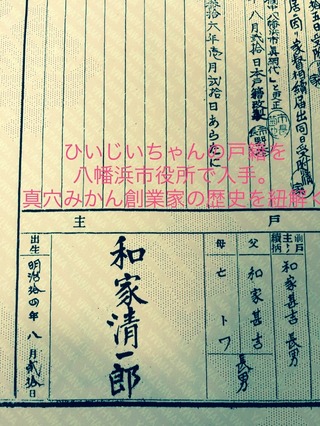 ひいじいちゃんの戸籍を
八幡浜市役所で入手。
真穴みかん創業家の歴史を紐解く
居因リ家督相続届出同日受附
八幡浜市真網代」と更正
八月貳拾日本戸籍改製
拾六年壱月貳拾日あらたに
戸
主
前戸主トノ続柄
和家甚吉長男
父
和家甚吉
母
亡トワ
長男
和家清一郎
出生
明治拾四年八月貳拾
日